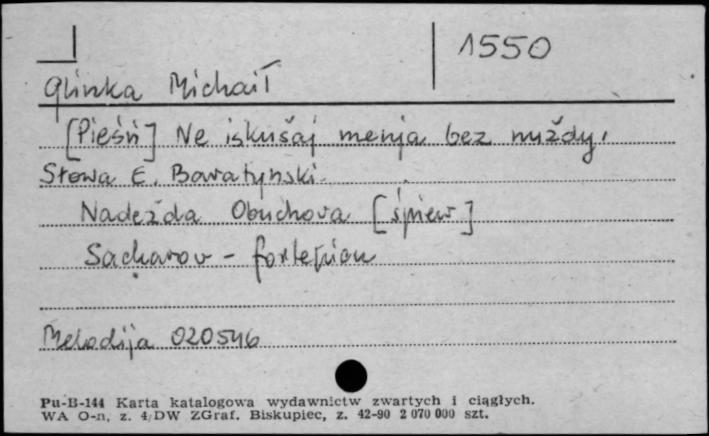 1550
Glinka Michaił
[Pieśń] Ne iskušaj menja bez nuždy.
Słowa E. Baratyński.
Nadežda Obuchova [śpiew]
Sacharov - fortepian
Melodija 020546
Pu-B-144 Karta katalogowa wydawnictw zwartych i ciągłych.
WA O-n, z. 4/DW ZGraf. Biskupiec, z. 42-90 2 070 000 szt.